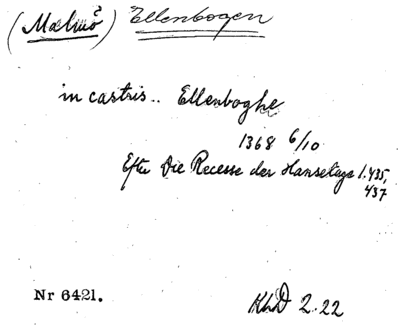 (Malmö) Ellenbogen
in castris.. Ellenboghe
1368 6/10
Efter Die Recesse der Hansetage 1.435,
437
Nr 6421.
KhD 2.22